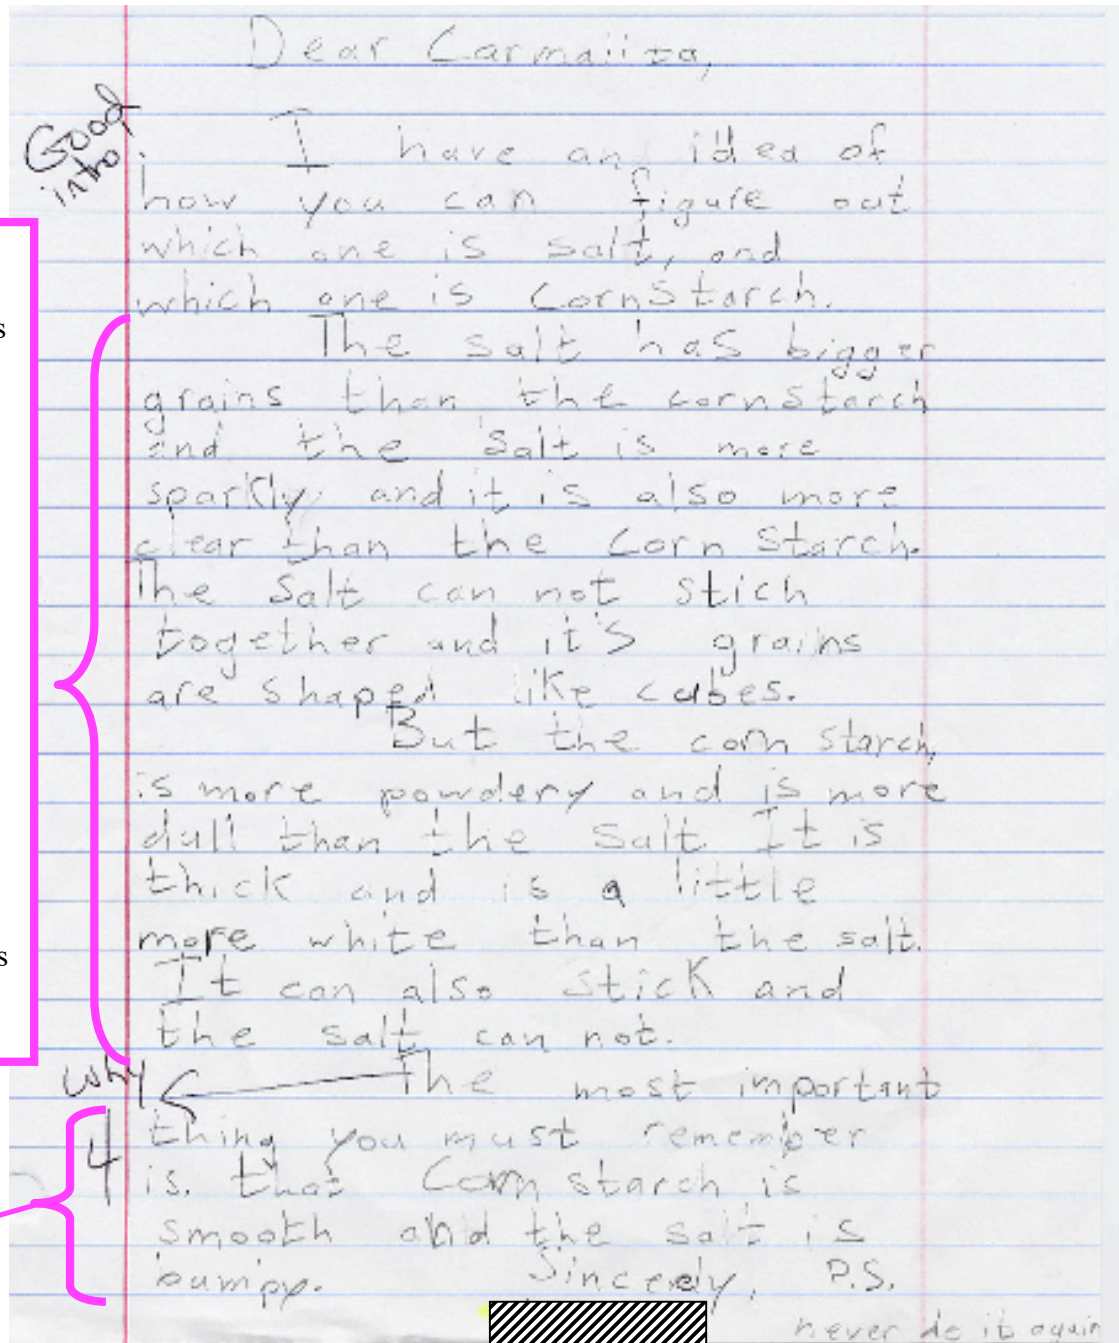 Dear Carmaiita,
Good
intro.
I have an idea of
how you can figure out
which one is salt, and
which one is cornstarch.
s
The salt has bigger
grains than the cornstarch
and the salt is more
sparkly and it is also more
clear than the corn starch.
The salt can not stich
together and it's grains
are shaped like cubes.
But the corn starch,
is more powdery and is more
dull than the salt It is
thick and is a little
more white than the salt.
s
It can also stick and
the salt can not.
Why
The most important
4
thing you must remember
is. that Corn starch is
smooth and the salt is
bumpy. Sincerely, P.S.
never do it again